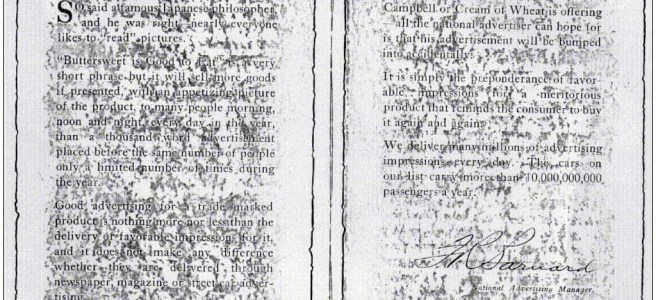 SO said a famous Japanese philosopher,
and he was right, nearly everyone
likes to "read" pictures.
"Buttersweet is Good to Eat" is a very
short phrase but it will sell more goods
if presented, with an appetizing picture
of the product, to many people morning,
noon and night, every day in the year,
than a thousand word advertisement
placed before the same number of people
only a limited number of times during
the year.
Good advertising for a trade marked
product is nothing more nor less than the
delivery of favorable impressions for it,
and it does not make any difference
whether they are delivered through
newspaper, magazine or street car adver-
tising.
Campbell or Cream of Wheat is offering
all the national advertiser can hope for
is that his advertisement will be bumped
into accidentally.
It is simply the preponderance of favor-
able impressions for a meritorious
product that reminds the consumer to buy
it again and again.
We deliver many millions of advertising
impressions every day. The cars on
our list carry more than 10,000,000,000
passengers a year.
Barnard
National Advertising Manager.